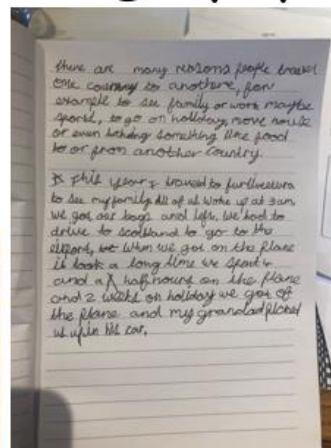 there are many reasons people travel
one country to anothere, for
example to see family or work maybe
sports, to go on holiday, move house
or even bringing something like food
to or from another country.
This year I traved to
to see my family. All of us woke up at 3am
we got our bags and left. We had to
drive to scotland to go to the
airport, when we got on the plane
it took a long time we spent
and a half hours on the plane
and 2 weeks on holiday we got of
the plane and my grandad picked
us up in his car.